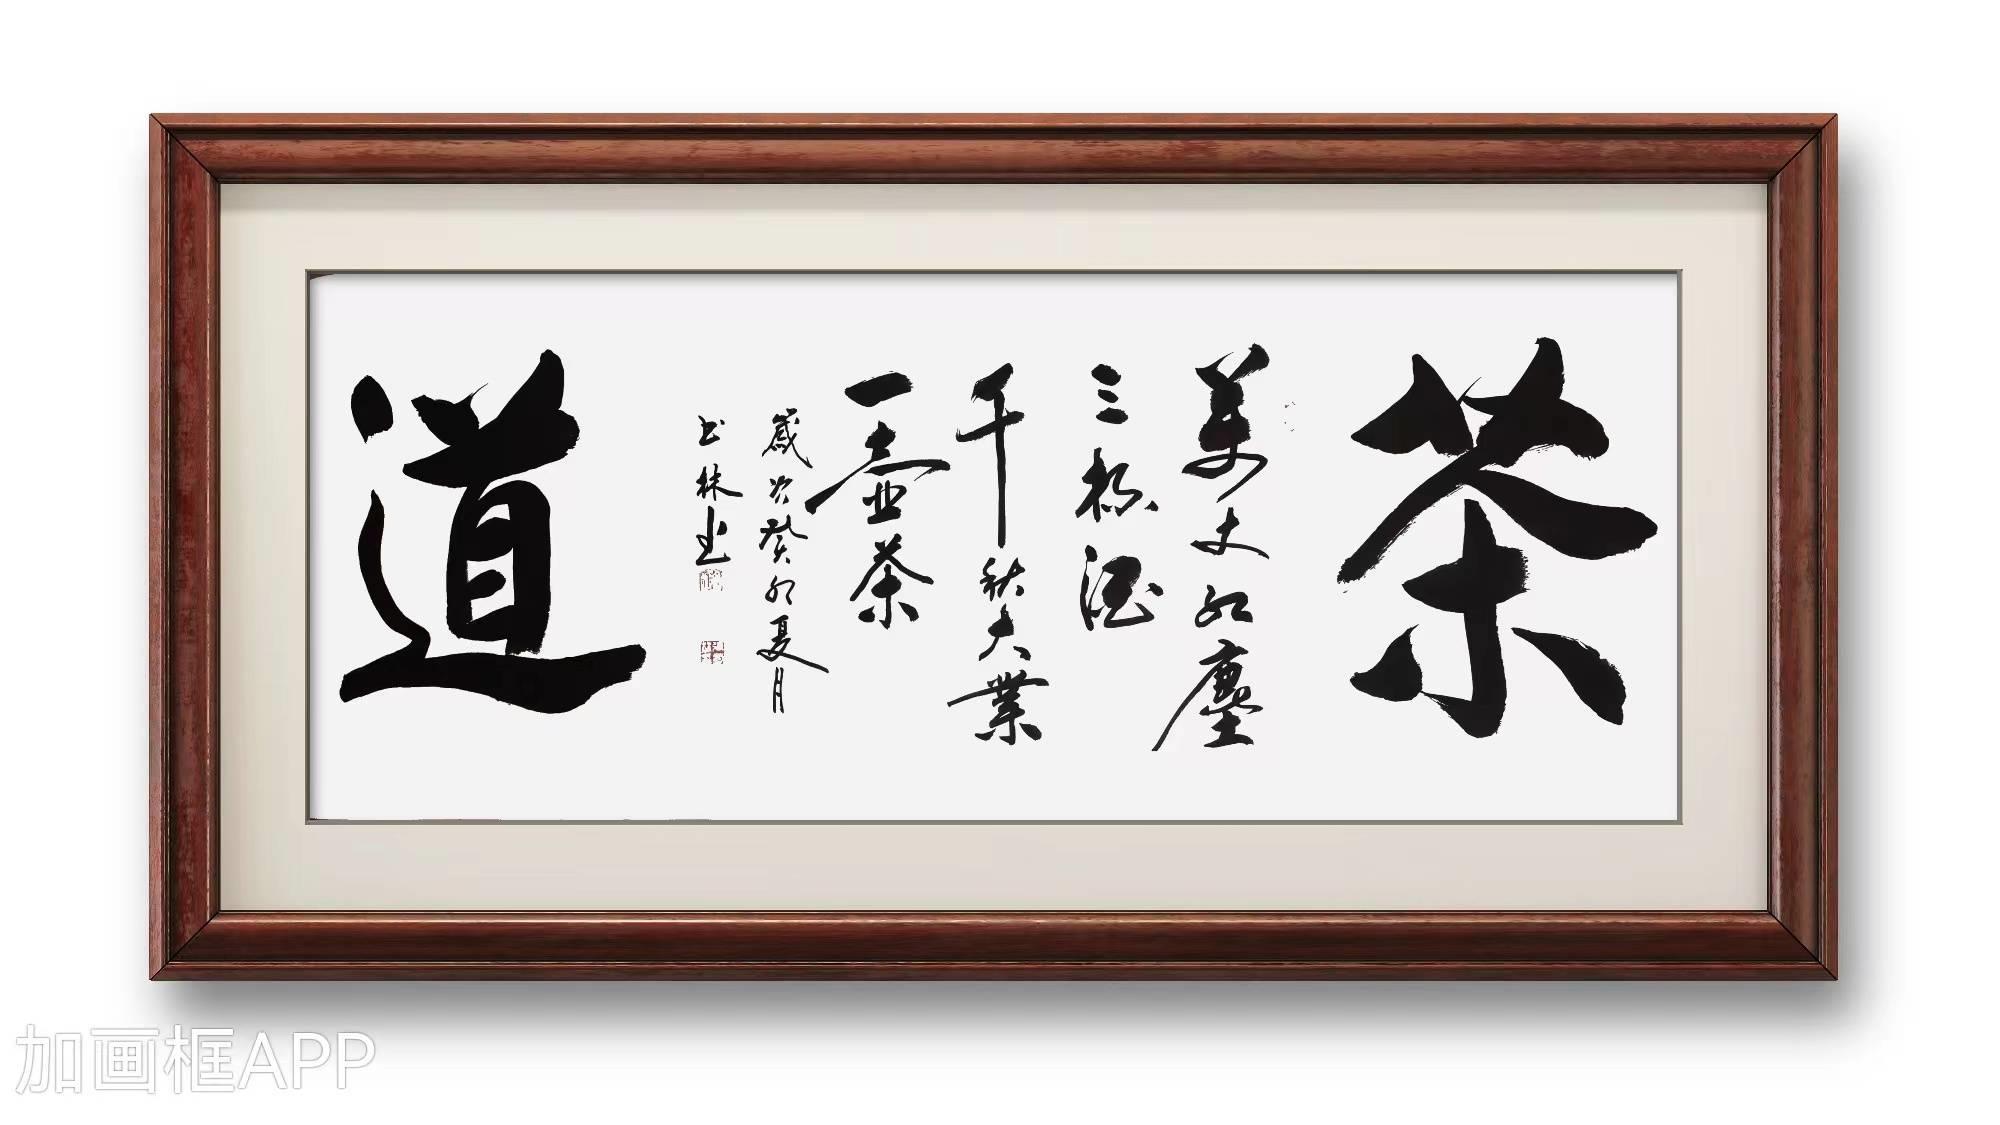 茶
萬丈紅塵
三杯酒
千秋大業
一壺茶
歲次癸卯夏月
林書
道
加画框APP